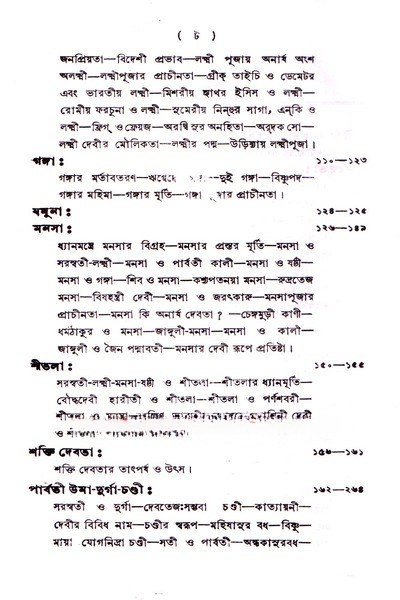 ( ট )
জনপ্রিয়তা—বিদেশী প্রভাব—লক্ষ্মী পূজায় অনার্য অংশ
অলক্ষ্মী—লক্ষ্মীপূজার প্রাচীনতা—গ্রীক্ তাইচি ও ডেমেটর
এবং ভারতীয় লক্ষ্মী—মিশরীয় হাথর ইসিস ও লক্ষ্মী—
রোমীয় ফরচুনা ও লক্ষ্মী—সুমেরীয় নিন্‌হুর সাগা, এন্‌কি ও
লক্ষ্মী—ফ্রিগ্ ও ফ্রেয়জ—অরদ্বি সুর অনহিতা—অর্‌দক্ সো—
লক্ষ্মী দেবীর মৌলিকতা—লক্ষ্মীর পদ্ম—উড়িষ্যায় লক্ষ্মীপূজা।
গঙ্গা : ১১০—১২৩
গঙ্গার মর্তাবতরণ—ঋগ্বেদে দুই গঙ্গা—বিষ্ণুপদ—
গঙ্গার মহিমা—গঙ্গার মূর্তি—গঙ্গা প্রাচীনতা।
যমুনা : ১২৪—১২৫
মনসা : ১২৬—১৪৯
ধ্যানমন্ত্রে মনসার বিগ্রহ—মনসার প্রস্তর মূর্তি—মনসা ও
সরস্বতী-লক্ষ্মী—মনসা ও পার্বতী কালী—মনসা ও ষষ্ঠী—
মনসা ও গঙ্গা—শিব ও মনসা—কশ্যপতনয়া মনসা—রুদ্রতেজ
মনসা—বিষহন্ত্রী দেবী—মনসা ও জরৎকারু—মনসাপূজার
প্রাচীনতা—মনসা কি অনার্য দেবতা ?—চেঙ্গমুড়ী কাণী—
ধর্মঠাকুর ও মনসা—জাঙ্গুলী-মনসা—মনসা ও কালী—
জাঙ্গুলী ও জৈন পদ্মাবতী—মনসার দেবী রূপে প্রতিষ্ঠা।
শীতলা : ১৫০—১৫৫
সরস্বতী-লক্ষ্মী-মনসা-ষষ্ঠী ও শীতলা—শীতলার ধ্যানমূর্তি—
বৌদ্ধদেবী হারীতী ও শীতলা—শীতলা ও পর্ণশবরী—
শীতলা ও দেবী
ও শীতলা
শক্তি দেবতা : ১৫৬—১৬১
শক্তি দেবতার তাৎপর্য ও উৎস।
পার্বতী উমা-দুর্গা-চণ্ডী : ১৬২—২৬৪
সরস্বতী ও দুর্গা—দেবতেজঃসম্ভবা চণ্ডী—কাত্যায়নী—
দেবীর বিবিধ নাম—চণ্ডীর স্বরূপ—মহিষাসুর বধ—বিষ্ণু—
মায়া যোগনিদ্রা চণ্ডী—সতী ও পার্বতী—অন্ধকাসুরবধ—